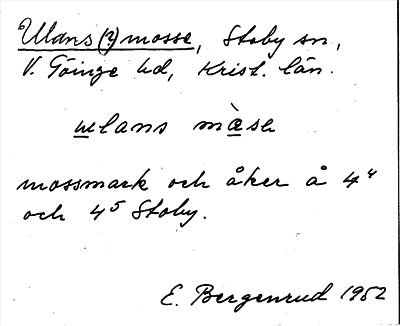 Ulans(?)mosse, Stoby sn,
V. Göinge hd, Krist. län.
ulans mòse
mossmark och åker å 4⁴
och 4⁵ Stoby.
E. Bergenrud 1952